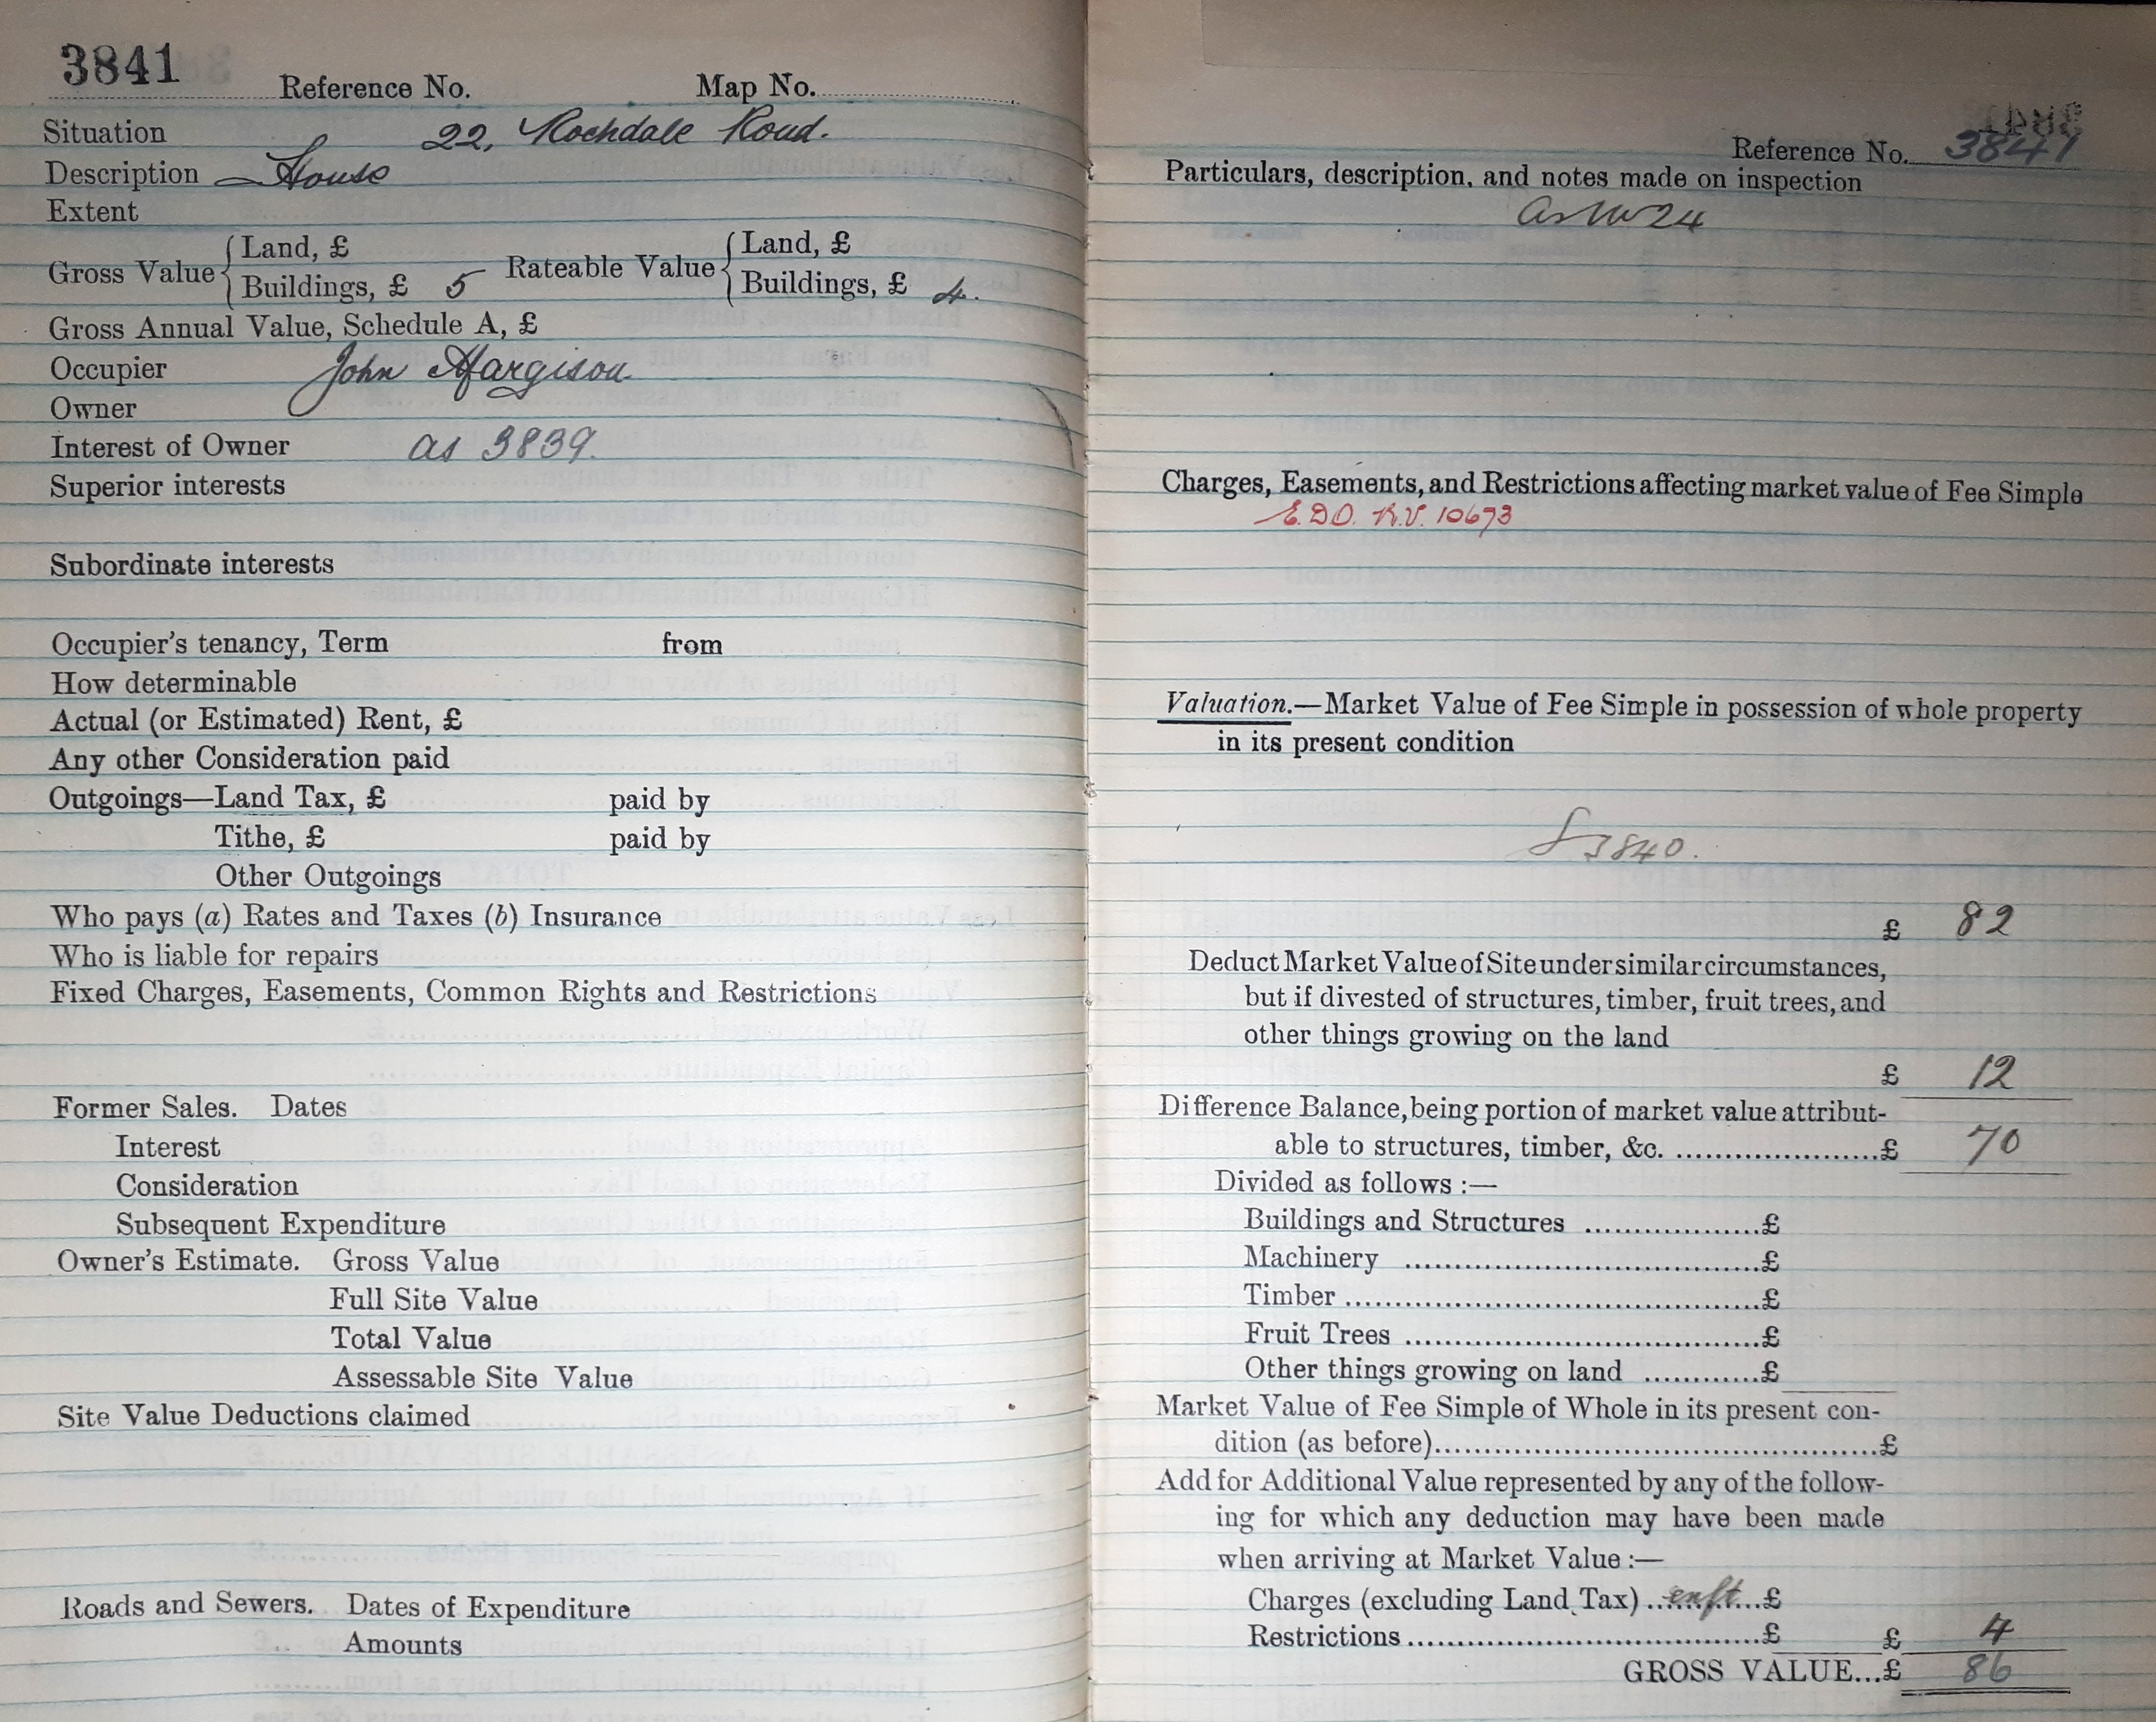 3841
Reference No. Map No.
Situation 22, Rochdale Road.
Description House
Extent
Gross Value { Land, £
Buildings, £ 5
Rateable Value { Land, £
Buildings, £ 4.
Gross Annual Value, Schedule A, £
Occupier John Hargison
Owner
Interest of Owner as 3839.
Superior interests
Subordinate interests
Occupier's tenancy, Term from
How determinable
Actual (or Estimated) Rent, £
Any other Consideration paid
Outgoings—Land Tax, £ paid by
Tithe, £ paid by
Other Outgoings
Who pays (a) Rates and Taxes (b) Insurance
Who is liable for repairs
Fixed Charges, Easements, Common Rights and Restrictions
Former Sales. Dates
Interest
Consideration
Subsequent Expenditure
Owner's Estimate. Gross Value
Full Site Value
Total Value
Assessable Site Value
Site Value Deductions claimed
Roads and Sewers. Dates of Expenditure
Amounts
Reference No. 3841
Particulars, description, and notes made on inspection
as 24
Charges, Easements, and Restrictions affecting market value of Fee Simple
E.D.O. R.V. 10673
Valuation.—Market Value of Fee Simple in possession of whole property
in its present condition
3840.
£ 82
Deduct Market Value of Site under similar circumstances,
but if divested of structures, timber, fruit trees, and
other things growing on the land
£ 12
Difference Balance, being portion of market value attribut-
able to structures, timber, &c. ......................£ 70
Divided as follows :—
Buildings and Structures ...................£
Machinery .......................................£
Timber .............................................£
Fruit Trees .......................................£
Other things growing on land ............£
Market Value of Fee Simple of Whole in its present con-
dition (as before)................................................£
Add for Additional Value represented by any of the follow-
ing for which any deduction may have been made
when arriving at Market Value :—
Charges (excluding Land Tax) ... enft ...£
Restrictions.......................................£ £ 4
GROSS VALUE...£ 86